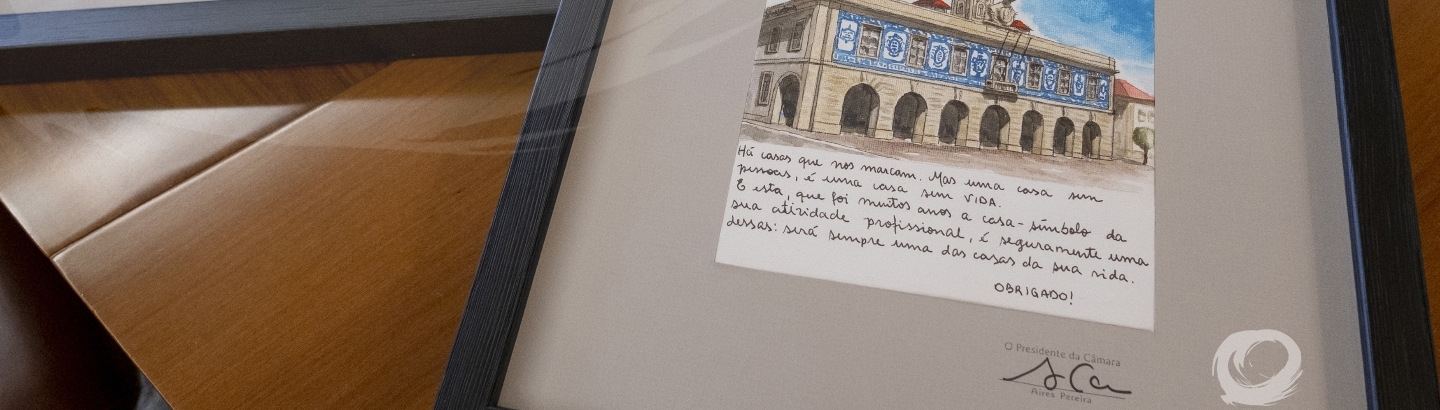 Há casas que nos marcam. Mas uma casa sem
pessoas, é uma casa sem VIDA.
E esta, que foi muitos anos a casa-símbolo da
sua atividade profissional, é seguramente uma
dessas: será sempre uma das casas da sua vida.
OBRIGADO!
O Presidente da Câmara
Aires Pereira